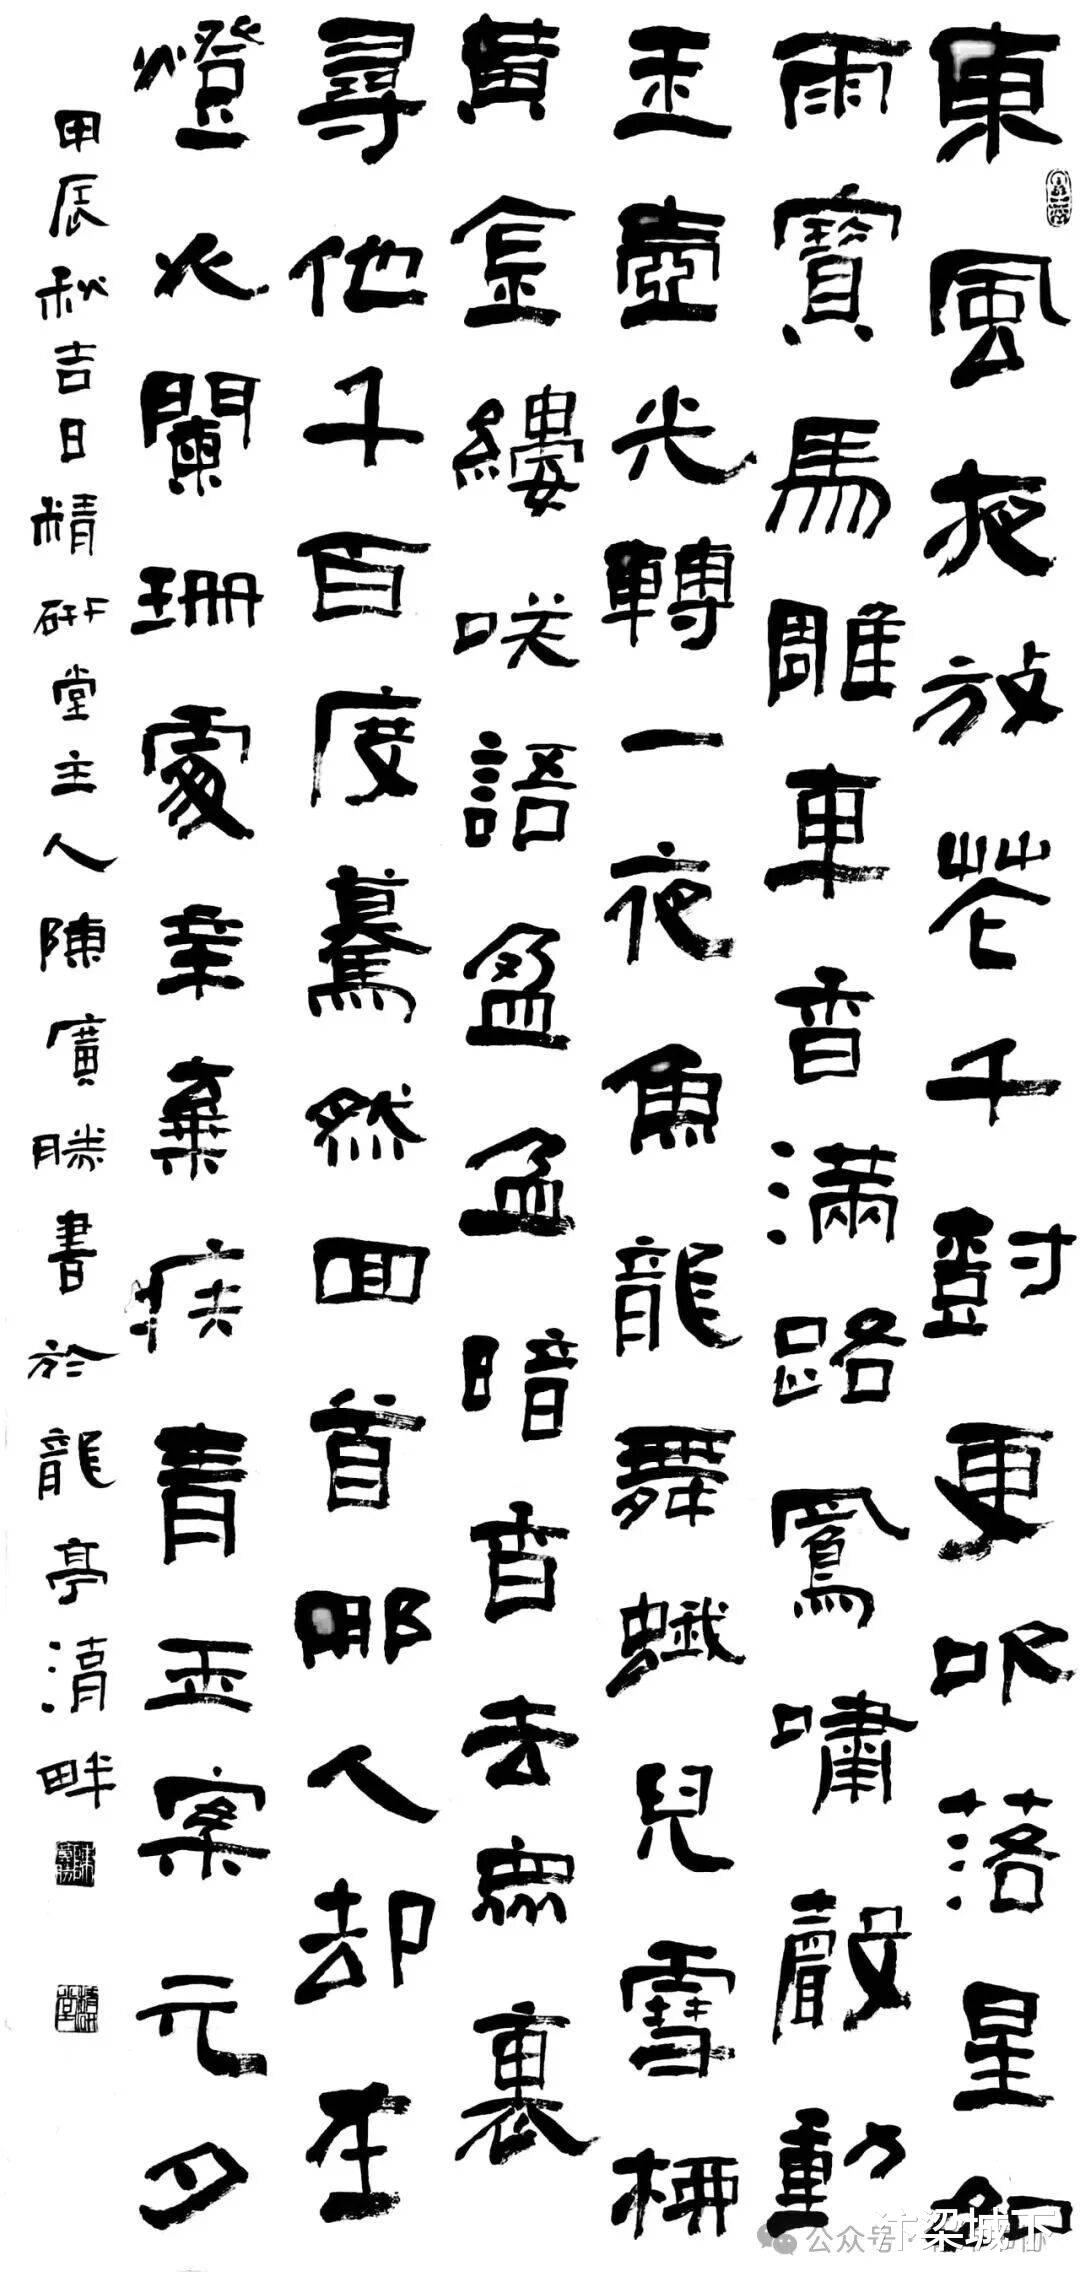 東風夜放花千尌更吹落星如
雨寶馬雕車香滿路鳳嘯聲動
玉壺光轉一夜魚龍舞蛾兒雪柳
黄金縷咲語盈盈暗香去眾裏
尋他千百度驀然回首那人却在
燈火闌珊處辛棄疾青玉案元夕
甲辰秋吉日精研堂主人陳廣勝書於龍亭清畔
公众号·汴梁城下